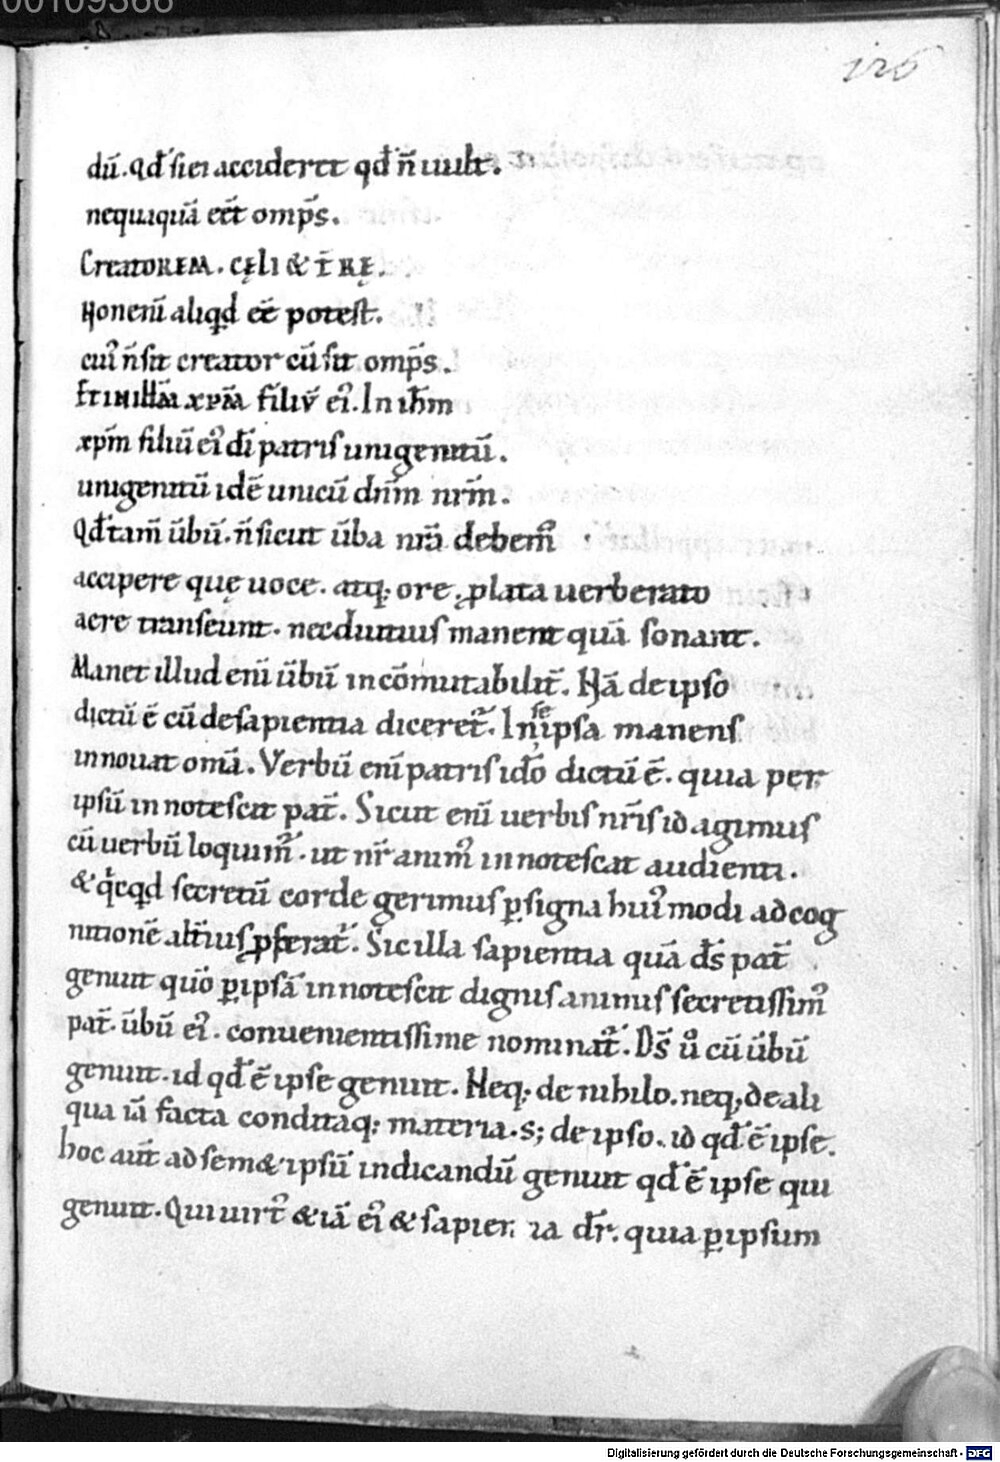 00109366
126
dū. Qđ si ei accideret qđ n̄ uult.
nequiquā eēt omp̄s.
CreatoREM. cęlI & t̄Rę.
Non enī aliqđ eē potest.
cui᾽ n̄ sit creator cū sit omp̄s.
xp̄m filiū ei᾽ dī patris unigenitū.
unigenitū idē unicū dn̄m nr̄m.
Qđ tam̄ ūbū. n̄ sicut ūba nr̄a debem᾽
accipere quę uoce. atq; ore ꝓlata uerberato
aere transeunt. nec diutius manent quā sonant.
Manet illud enī ūbū incōmutabilit̄. Nā de ipso
dictū ē cū de sapientia diceret᷑. In se ipsa manens
innouat om̄a. Verbū enī patris idō dictū ē. quia per
ipsū innotescit pat̄. Sicut enī uerbis nr̄is id agimus
cū uerbū loquim᷑. ut nr̄ anim᾽ innotescat audienti.
& qͥcqđ secretū corde gerimus ꝑ signa hui᾽modi ad cog
nitionē alt̄ius ꝓferat᷑. Sic illa sapientia quā dς̄ pat̄
genuit quō ꝑ ipsā innotescit dignis animis secretissim᾽
pat̄. ūbū ei᾽. conuenientissime nominat᷑. Dς̄ ů cū ūbū
genuit. id qđ ē ipse genuit. Neq; de nihilo. neq; de ali
qua iā facta conditaq; materia. s; de ipso. id qđ ē ipse.
hoc aūt ad sem& ipsū indicandū genuit qđ ē ipse qui
genuit. Qui uirt᾽ & iā ei᾽ & sapientia dr̄. quia ꝑ ipsum
Digitalisierung gefördert durch die Deutsche Forschungsgemeinschaft - DFG